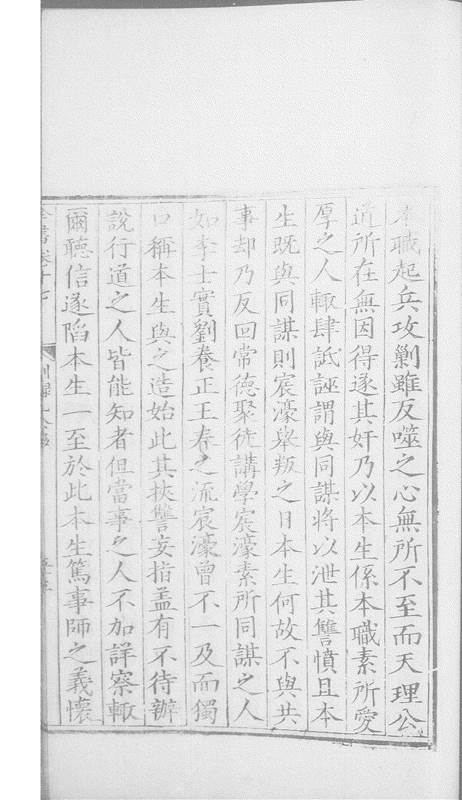 本職起兵攻剿雖反噬之心無所不至而天理公
道所在無因得遂其奸乃以本生係本職素所愛
厚之人輙肆詆誣謂與同謀將以泄其讐憤且本
生既與同謀則宸濠舉叛之日本生何故不與共
事却乃反回常德聚徒講學宸濠素所同謀之人
如李士實劉養正王春之流宸濠曾不一及而獨
口稱本生與之造始此其挾讐妄指葢有不待辯
說行道之人皆能知者但當事之人不加詳察輙
爾聽信遂陷本生一至於此本生篤事師之義懷
全書卷十七